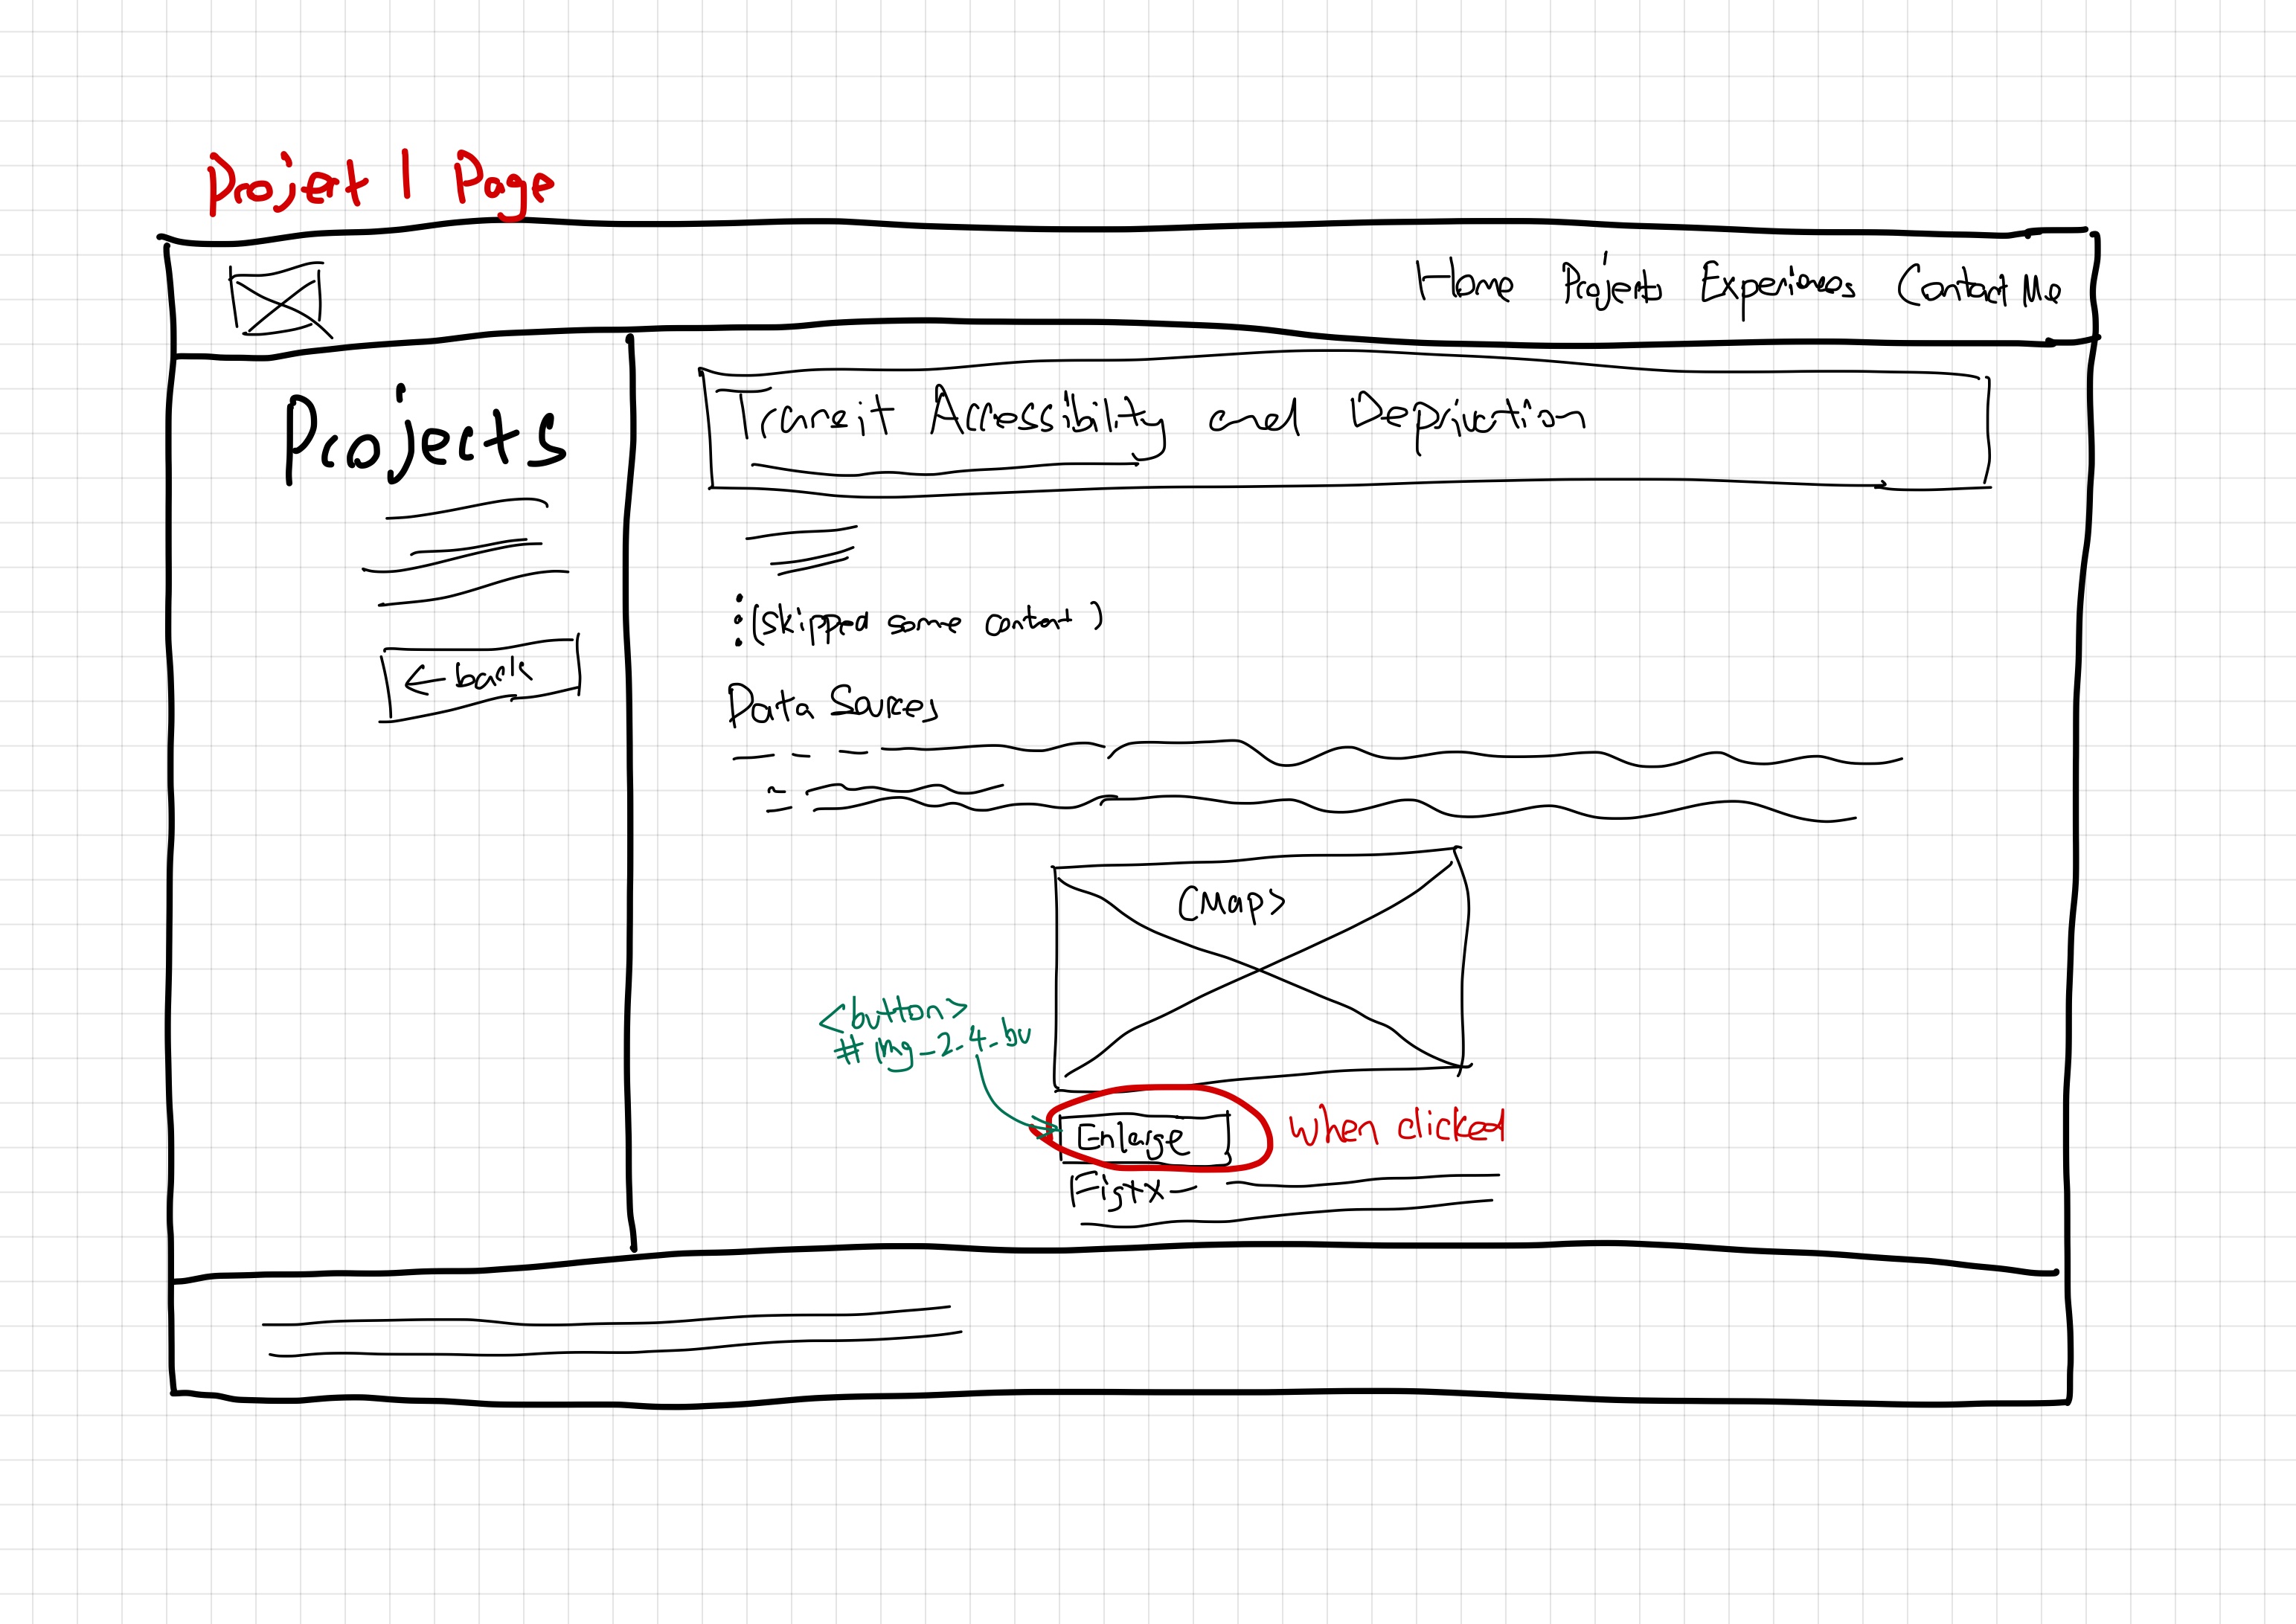 Projet 1 Page
Home Projets Experiences Contact Me
Projects
Transit Accessibility and Depriviation
← back
⋮ (skipped some content)
Data Sources
<Map>
<button>
# img_2_4_bu
Enlarge
When clicked
Fig+x-